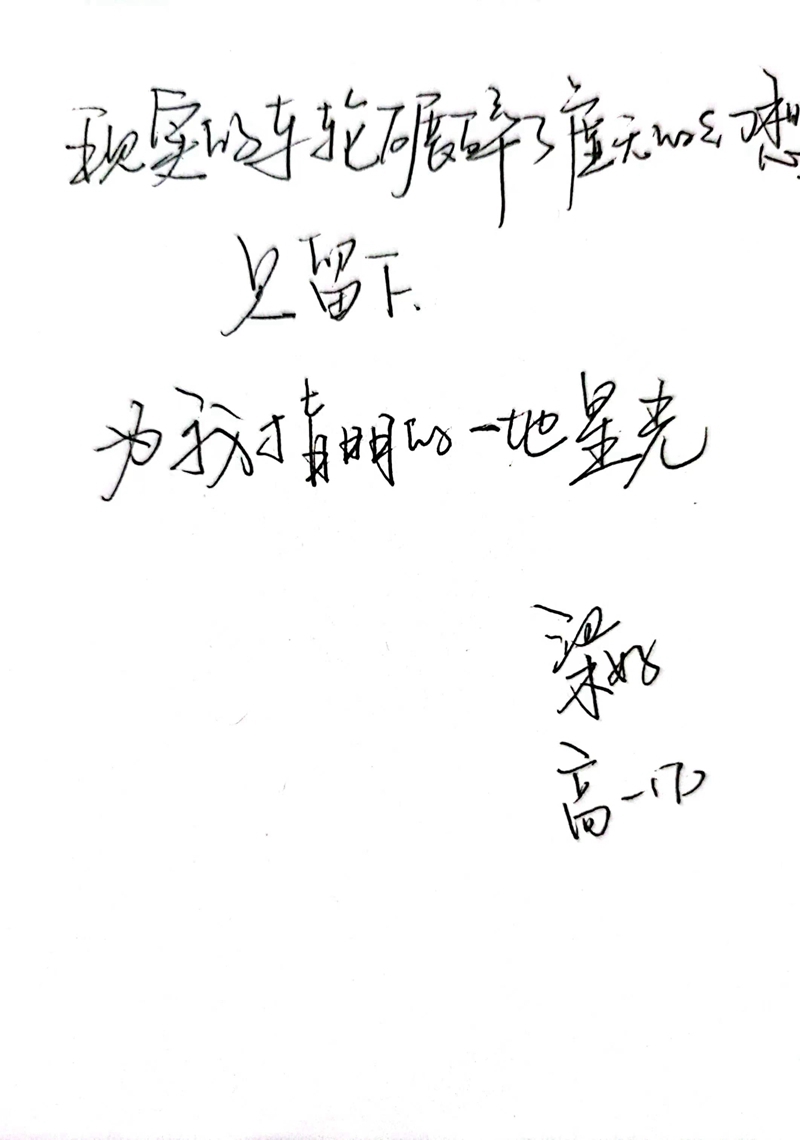 现实的车轮碾碎了虚无的幻想
只留下
为我指明的一地星光
梁好
高一